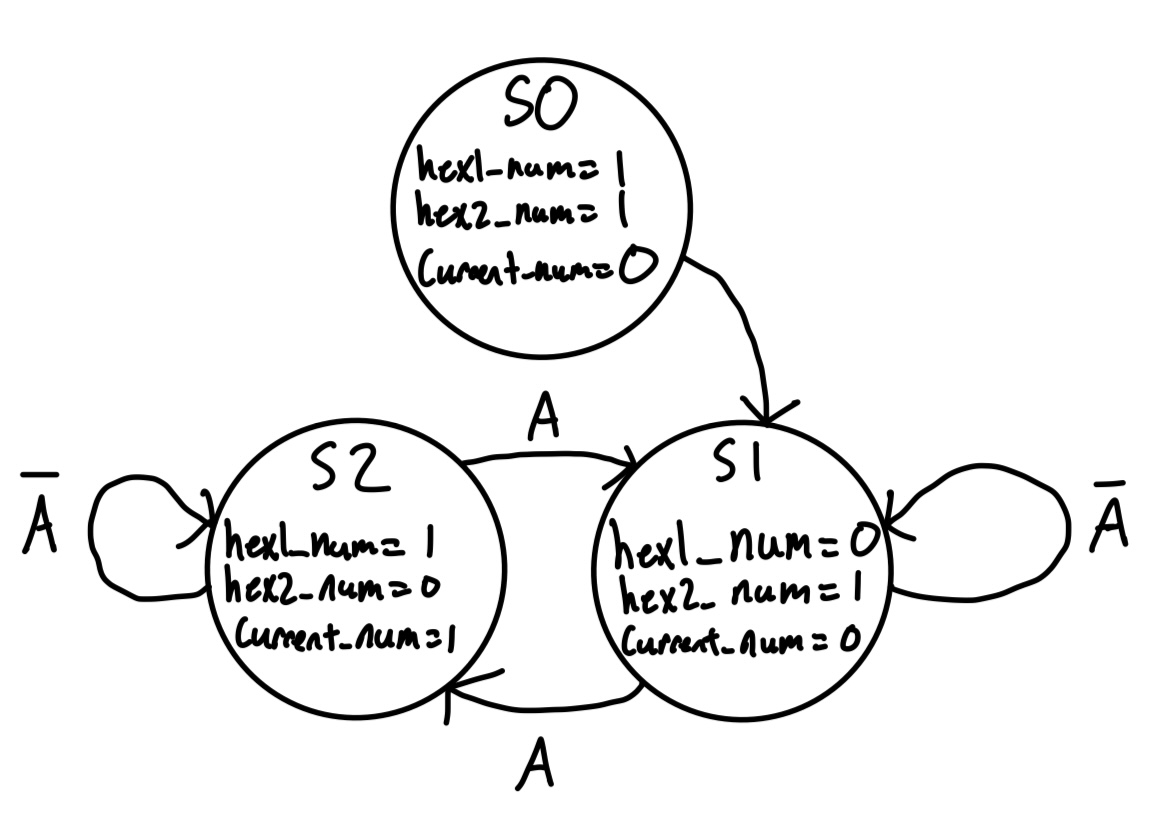 S0
hex1_num= 1
hex2_num= 1
Current_num=0
A
S2
hex1_num= 1
hex2_num= 0
Current_num=1
Ā
S1
hex1_num=0
hex2_num=1
Current_num=0
Ā
A